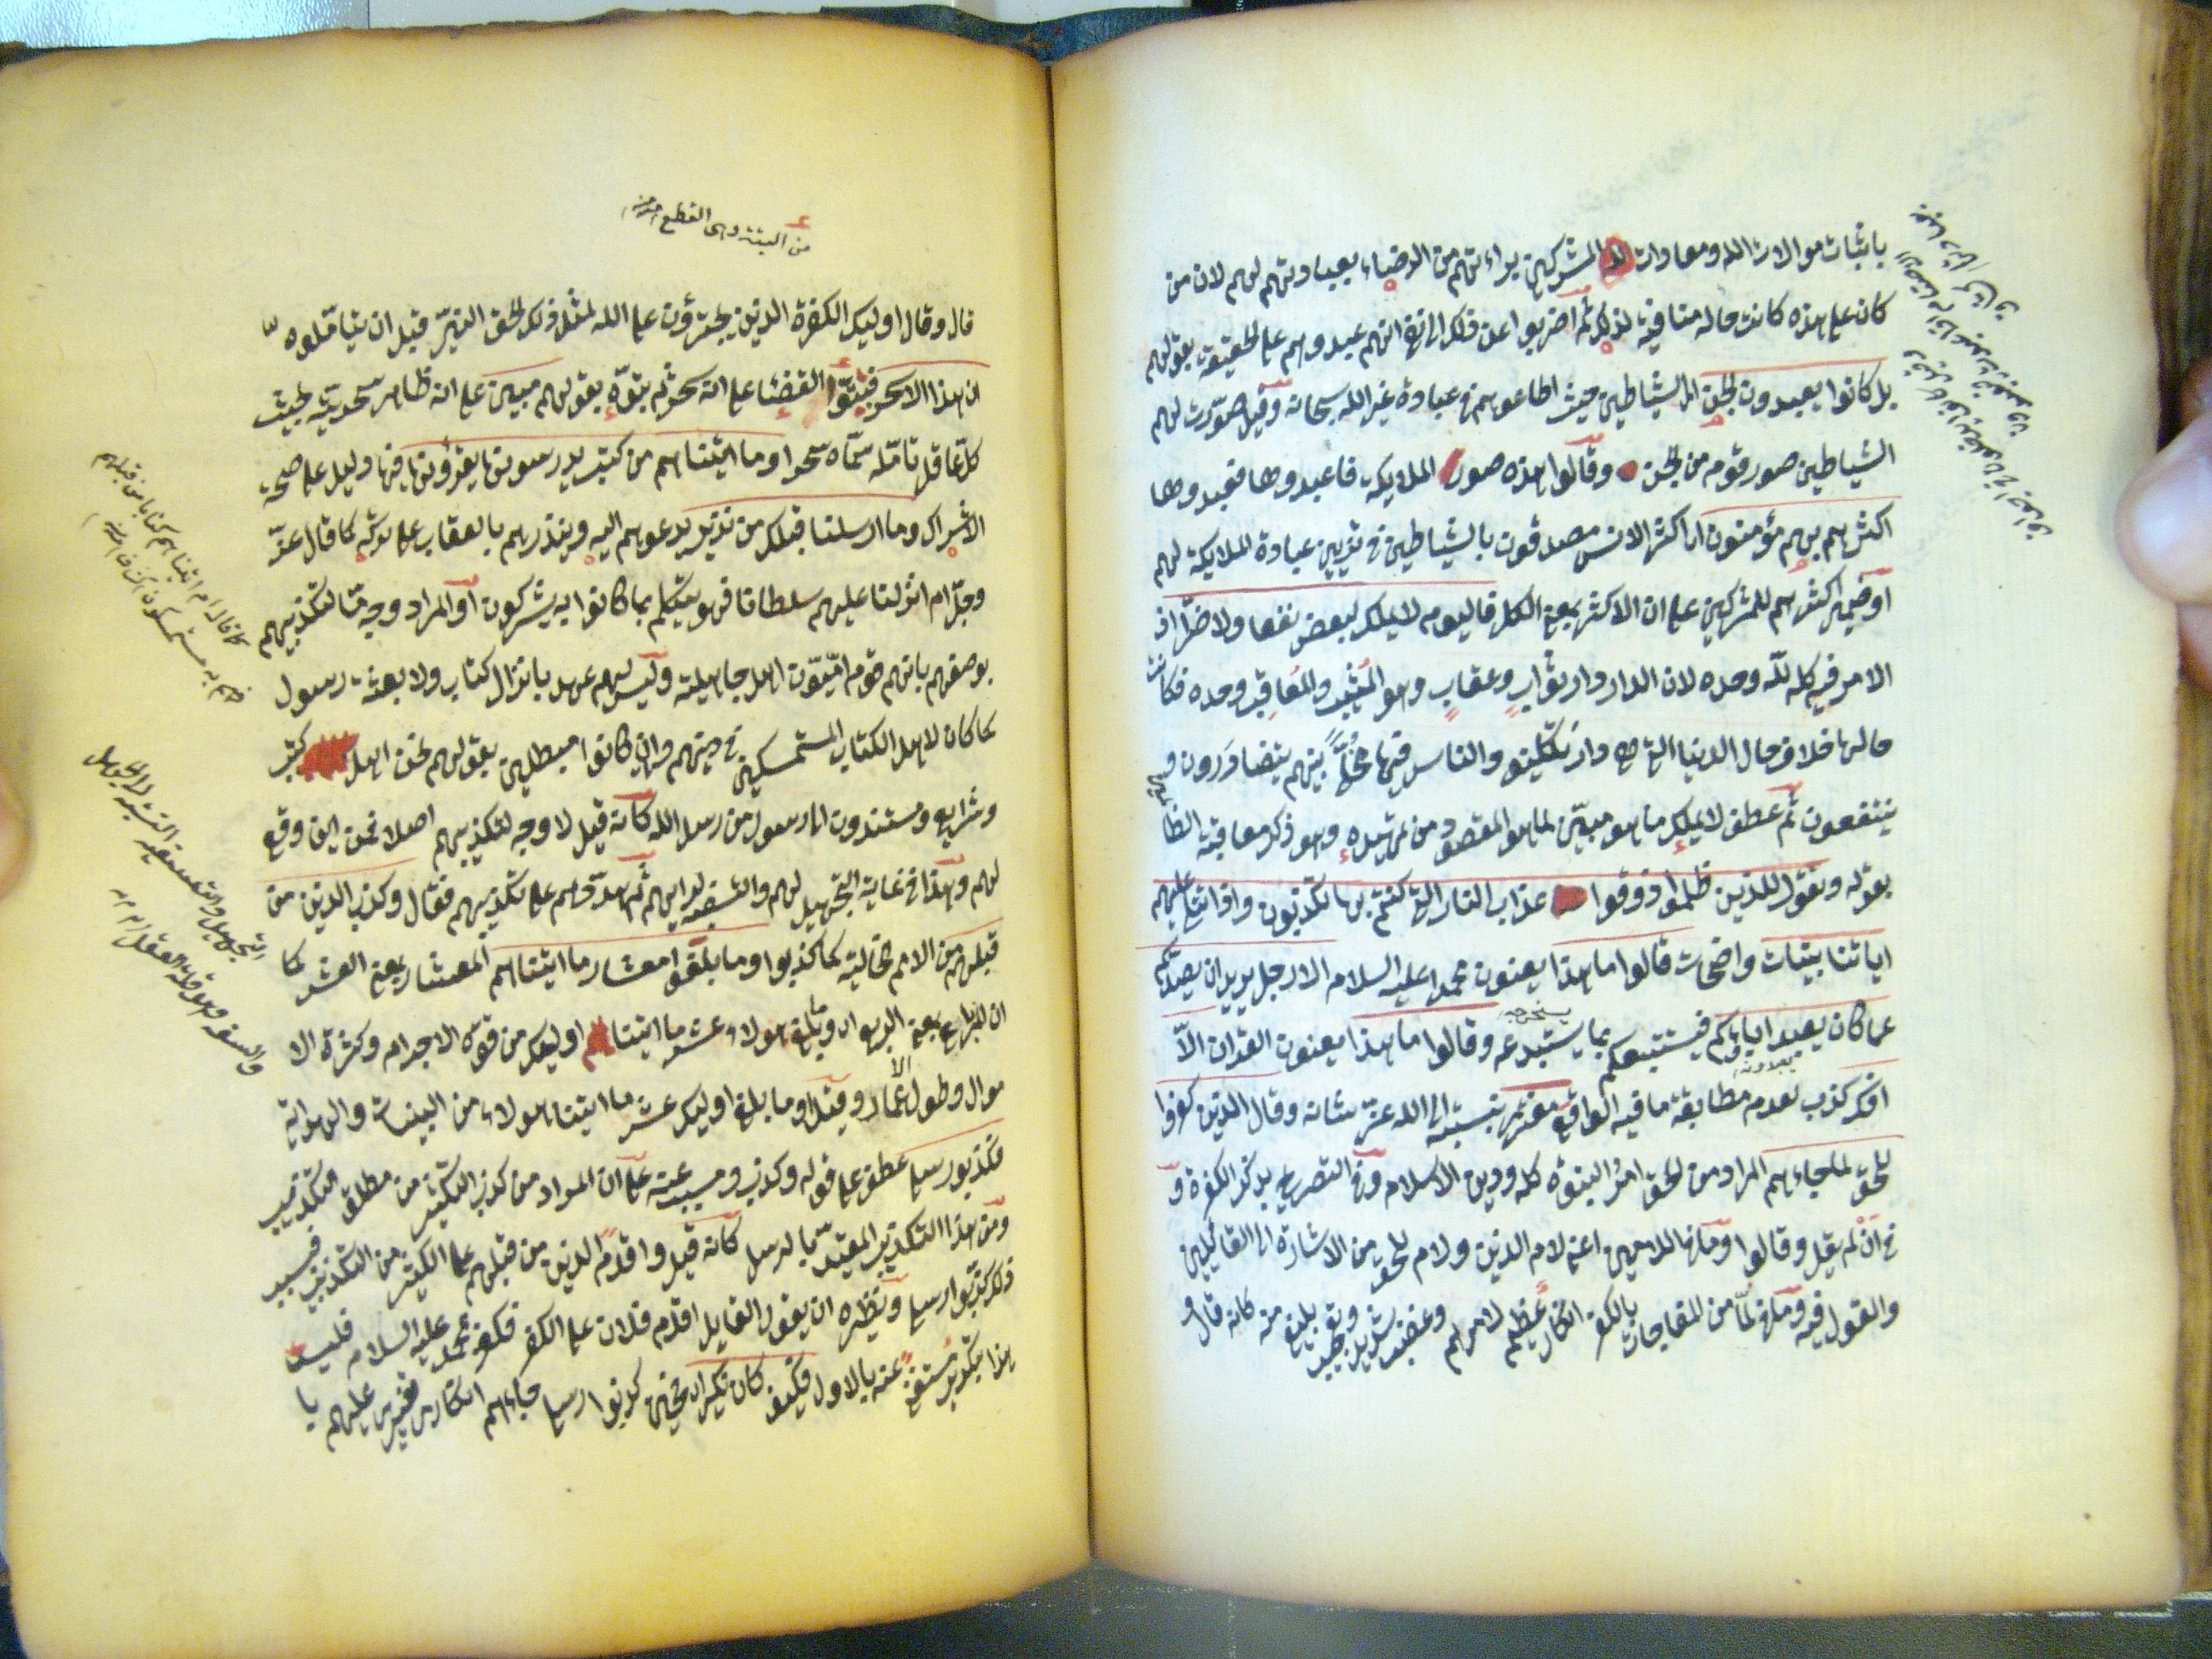 باثبات موالات الله ومعادات المشركين براءتهم من الرضاء بعبادتهم لهم لان من
كان على هذه كانت حاله منافية لذلك ثم اضربوا عن ذلك انهم عبدوهم على الحقيقة بقولهم
بل كانوا يعبدون الجن اي الشياطين حيث اطاعوهم في عبادة غير الله سبحانه وقيل صورت لهم
الشياطين صور قوم من الجن وقالوا هذه صور الملايكة فاعبدوها فعبدوها
اكثرهم بهم مؤمنون اي اكثر الانس مصدقون بالشياطين في تزيين عبادة الملايكة لهم
او ضمير اكثرهم للمشركين على ان الاكثر بمعنى الكل فاليوم لا يملك بعضكم لبعض نفعا ولا ضرا اذ
الامر فيه كله لله وحده لان الدار دار ثواب وعقاب وهو المثيب والمعاقب وحده فكانت
حالها خلاف حال الدنيا التي هي دار تكليف والناس فيها مخلى بينهم يتضارون و
ينتفعون ثم عطف لا يملك ما هو مبين لما هو المقصود من تمهيده وهو ذكر معاقبة الظالمين
بقوله ونقول للذين ظلموا ذوقوا عذاب النار التي كنتم بها تكذبون واذا تتلى عليهم
اياتنا بينات واضحات قالوا ما هذا يعنون محمدا عليه السلام الا رجل يريد ان يصدكم
عما كان يعبد اباؤكم فيستتبعكم بما يستبدعه وقالوا ما هذا يعنون القران الا
افك كذب لعدم مطابقة ما فيه الواقع مفترى بنسبته الى الله عز شانه وقال الذين كفروا
للحق لما جاءهم المراد من الحق امر النبوة كله ودين الاسلام وفي التصريح بذكر الكفرة و
في ان لم يقل وقالوا وما في اللامين اعني لام الذين ولام للحق من الاشارة الى القائلين
والقول فيه وما في لما من المفاجات بالكفر انكار عظيم لامرهم وغضب شديد وتعجيب بليغ منه كانه قال
من البتة وهي القطع منه
قال وقال اوليك الكفرة الذين يجترؤن على الله لمثل ذلك الحق النير قبل ان يتاملوه
ان هذا الا سحر فبتوا القضاء على انه سحر ثم بتوه بقولهم مبين على انه ظاهر سحريته بحيث
كل عاقل تامله سماه سحرا وما اتيناهم من كتب يدرسونها يقرؤنها فيها دليل على صحة
الاشراك وما ارسلنا قبلك من نذير يدعوهم اليه وينذرهم بالعقاب على تركه كما قال عز
وجل ام انزلنا عليهم سلطانا فهو يتكلم بما كانوا به يشركون او المراد وجه ما لتكذيبهم
بوصفهم بانهم قوم اميون اهل جاهلية وليس لهم عهد بانزال كتاب ولا بعثة رسول
كما كان لاهل الكتاب المستمسكين في دينهم وان كانوا مبطلين بقولهم نحن اهل كتب
وشرايع ومستندون الى رسول من رسل الله كانه قيل لا وجه لتكذيبهم اصلا فمن اين وقع
لهم وهذا في غاية التجهيل لهم والتسفيه لرايهم ثم هددهم على تكذيبهم فقال وكذب الذين من
قبلهم من الامم الخالية كما كذبوا وما بلغوا معشار ما اتيناهم المعشار بمعنى العشر كما
ان المرباع بمعنى الربع اي وما بلغ هولاء عشر ما اتينا اوليك من قوة الاجرام وكثرة الا
موال وطول الاعمار وقيل او ما بلغ اوليك عشر ما اتينا هولاء من البينات والهداية
فكذبوا رسلي عطف على قوله وكذب ومسبب عنه على ان المراد من كذب التكثير من مطلق التكذيب
ومن هذا التكذيب المقيد بالرسل كانه قيل واقدم الذين من قبلهم على الكثير من التكذيب فبسبب
ذلك كذبوا رسلي ونظيره ان يقول القايل اقدم فلان على الكفر فكفر بمحمد عليه السلام فليس
هذا بتكذيب مستغن عنه بالاول فكيف كان نكير اي فحين كذبوا رسلي جاءهم انكاري تغييري عليهم با
كما قال ام اتيناهم كتابا من قبله
فهم به مستمسكون
التجهيل والتسفيه النسبة الى الجهل
والسفه وهو قلة العقل